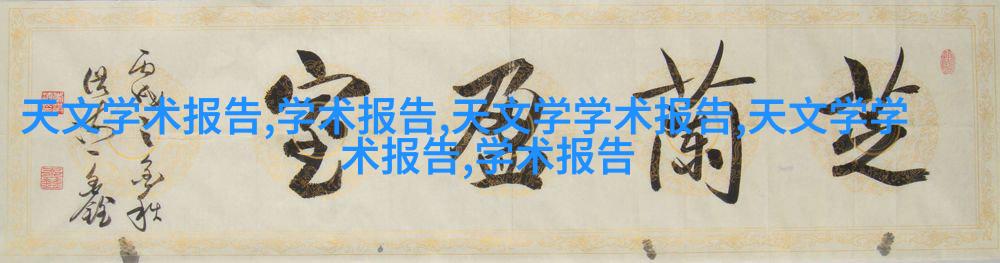 芝蘭盈室
天文学术报告,学术报告,天文学学术报告,天文学学
术报告,学术报告